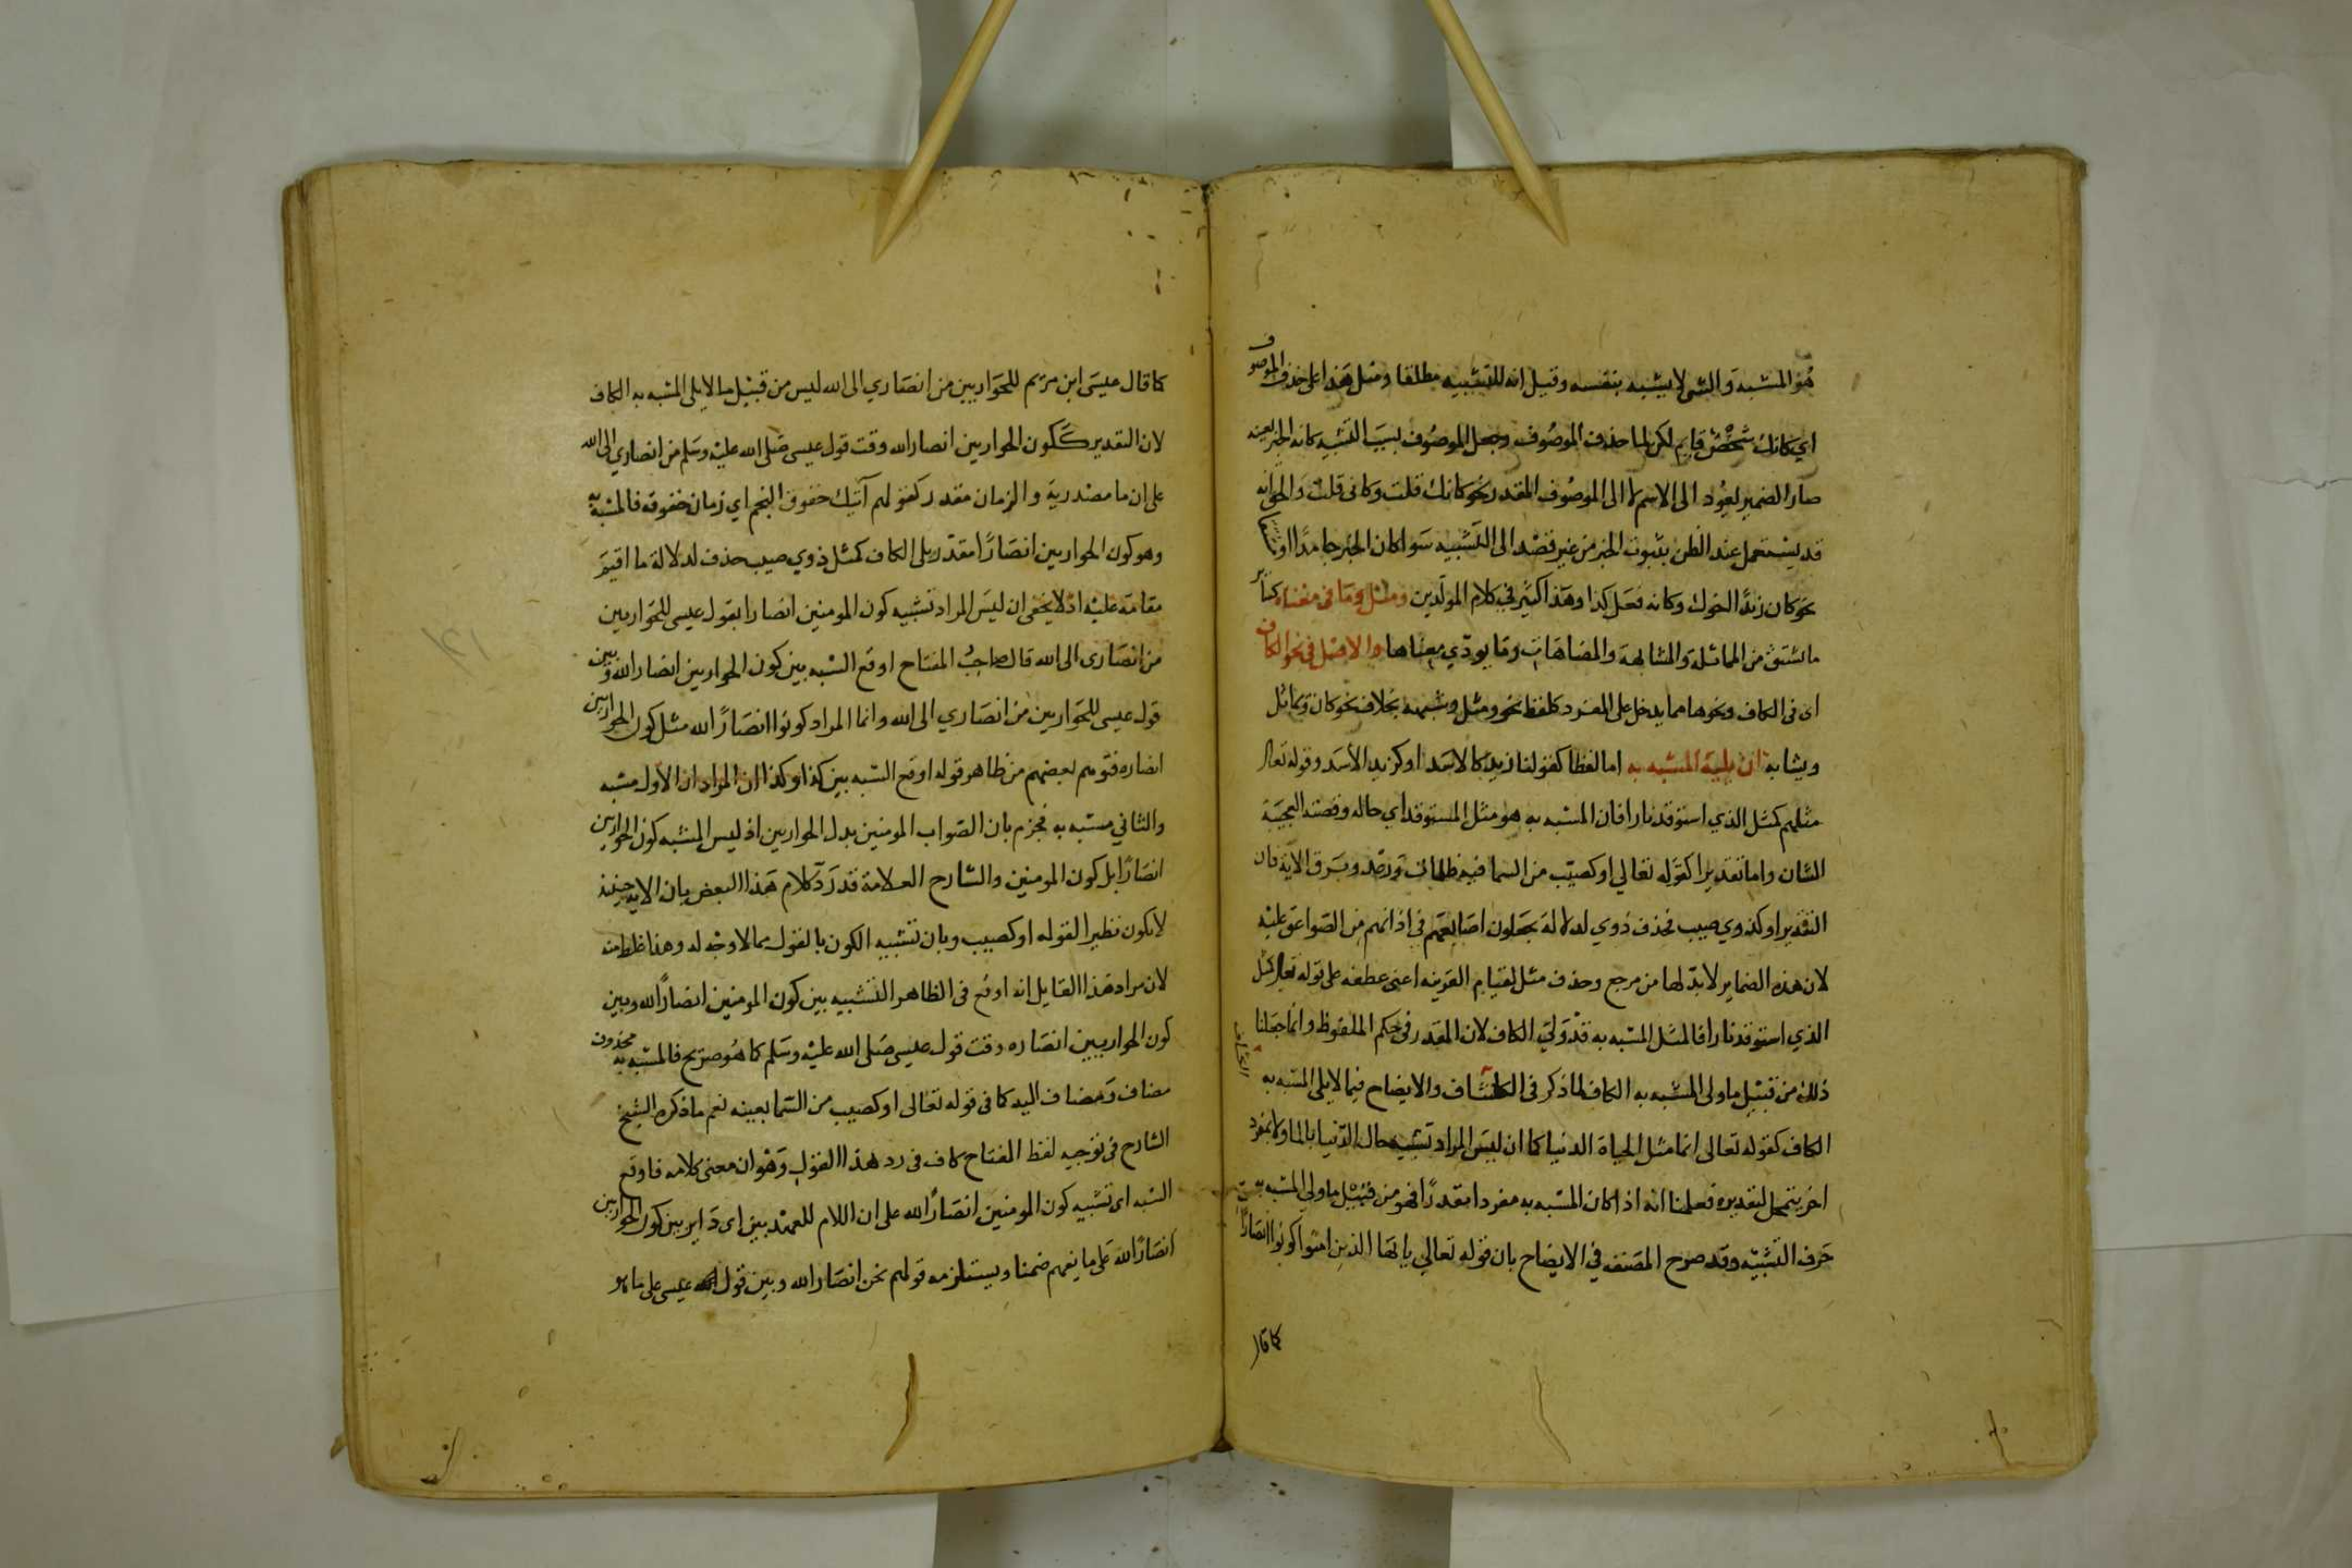 هو المشبه والشي لا يشبه بنفسه وقيل انه للتشبيه مطلقا ومثل هذا على حذف الموصوف
اي كانك شخص قايم لكن لما حذف الموصوف وجعل الموصوف لسبب التشبيه كانه الخبر بعينه
صار الضمير يعود الى الاسم لا الى الموصوف المقدر نحو كانك قلت وكانى قلت والحق انه
قد يستعمل عند الظن بثبوت الخبر من غير قصد الى التشبيه سوا كان الخبر جامدا او مشتقا
نحو كان زيدا اخوك وكانه فعل كذا وهذا كثير في كلام المولدين ومثل وما فى معناه كساير
ما اشتق من المماثلة والمشابهة والمضاهات وما يودي معناها والاصل فى نحو الكاف
اى فى الكاف ونحوها مما يدخل على المفرد كلفظ نحو ومثل وشبه بخلاف نحو كان وتماثل
ويشابه ان يليه المشبه به اما لفظا كقولنا زيد كالاسد او كزيد الاسد وقوله تعالى
مثلهم كمثل الذي استوقد نارا فان المشبه به هو مثل المستوقد اي حاله وقصته العجيبة
الشان واما تقديرا كقوله تعالي او كصيب من السما فيه ظلمات ورعد وبرق الاية فان
التقدير او كذوي صيب فحذف ذوي لدلالة يجعلون اصابعهم في اذانهم من الصواعق عليه
لان هذه الضماير لا بد لها من مرجع وحذف مثل لقيام القرينه اعنى عطفه على قوله تعالى كمثل
الذي استوقد نارا فالمثل المشبه به قد ولي الكاف لان المقدر فى حكم الملفوظ وانما جعلنا
ذلك من قبيل ما ولى المشبه به الكاف لما ذكر فى الكشاف والايضاح فيما لا يلى المشبه به
الكاف كقوله تعالى انما مثل الحياة الدنيا كما ان ليس المراد تشبيه حال الدنيا بالما ولا بمفرد
اخر يتمحل لتقديره فعلمنا انه اذا كان المشبه به مفردا مقدرا فهو من قبيل ما ولي المشبه به
حرف التشبيه وقد صرح المصنف في الايضاح بان قوله تعالي يا ايها الذين امنوا كونوا انصارا
كما قال
كما قال عيسى ابن مريم للحواريين من انصاري الى الله ليس من قبيل ما لا يلى المشبه به الكاف
لان التقدير ككون الحواريين انصار الله وقت قول عيسى صلى الله عليه وسلم من انصاري الى الله
على ان ما مصدرية والزمان مقدر كقولهم آتيك خفوق النجم اي زمان خفوقه فالمشبه به
وهو كون الحواريين انصارا مقدر يلى الكاف كمثل ذوي صيب حذف لدلالة ما اقيم
مقامه عليه اذ لا يخفى ان ليس المراد تشبيه كون المومنين انصارا بقول عيسى للحواريين
من انصارى الى الله قال صاحب المفتاح اوقع الشبه بين كون الحواريين انصار الله وبين
قول عيسى للحواريين من انصاري الى الله وانما المراد كونوا انصارا لله مثل كون الحواريين
انصاره فتوهم بعضهم من ظاهر قوله اوقع الشبه بين كذا وكذا ان المراد ان الأول مشبه
والثاني مشبه به فجزم بان الصواب المومنين بدل الحواريين اذ ليس المشبه كون الحواريين
انصارا بل كون المومنين والشارح العلامة قد رد كلام هذا البعض بان الاية حينئذ
لا يكون نظيرا لقوله او كصيب وبان تشبيه الكون بالقول مما لا وجه له وهذا غلط منه
لان مراد هذا القايل انه اوقع فى الظاهر التشبيه بين كون المومنين انصارا لله وبين
كون الحواريين انصاره وقت قول عيسى صلى الله عليه وسلم كما هو صريح فالمشبه به محذوف
مضاف ومضاف اليه كما فى قوله تعالى او كصيب من السما بعينه نعم ما ذكره الشيخ
الشارح فى توجيه لفظ المفتاح كاف فى رد هذا القول وهو ان معنى كلامه فاوقع
الشبه اى تشبيه كون المومنين انصارا لله على ان اللام للعهد بين اى داير بين كون الحواريين
انصارا لله على ما يفهم ضمنا ويستلزمه قولهم نحن انصار الله وبين قول عيسى على ما هو